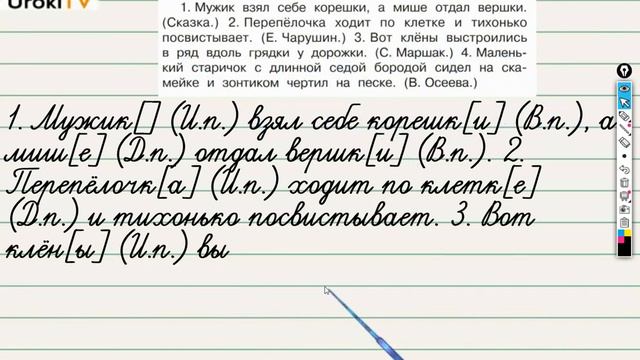 UrokiTV
1. Мужик взял себе корешки, а мише отдал вершки.
(Сказка.) 2. Перепёлочка ходит по клетке и тихонько
посвистывает. (Е. Чарушин.) 3. Вот клёны выстроились
в ряд вдоль грядки у дорожки. (С. Маршак.) 4. Малень-
кий старичок с длинной седой бородой сидел на ска-
мейке и зонтиком чертил на песке. (В. Осеева.)
1. Мужик[] (И.п.) взял себе корешк[и] (В.п.), а
миш[е] (Д.п.) отдал вершк[и] (В.п.). 2.
Перепёлочк[а] (И.п.) ходит по клетк[е]
(Д.п.) и тихонько посвистывает. 3. Вот
клён[ы] (И.п.) вы